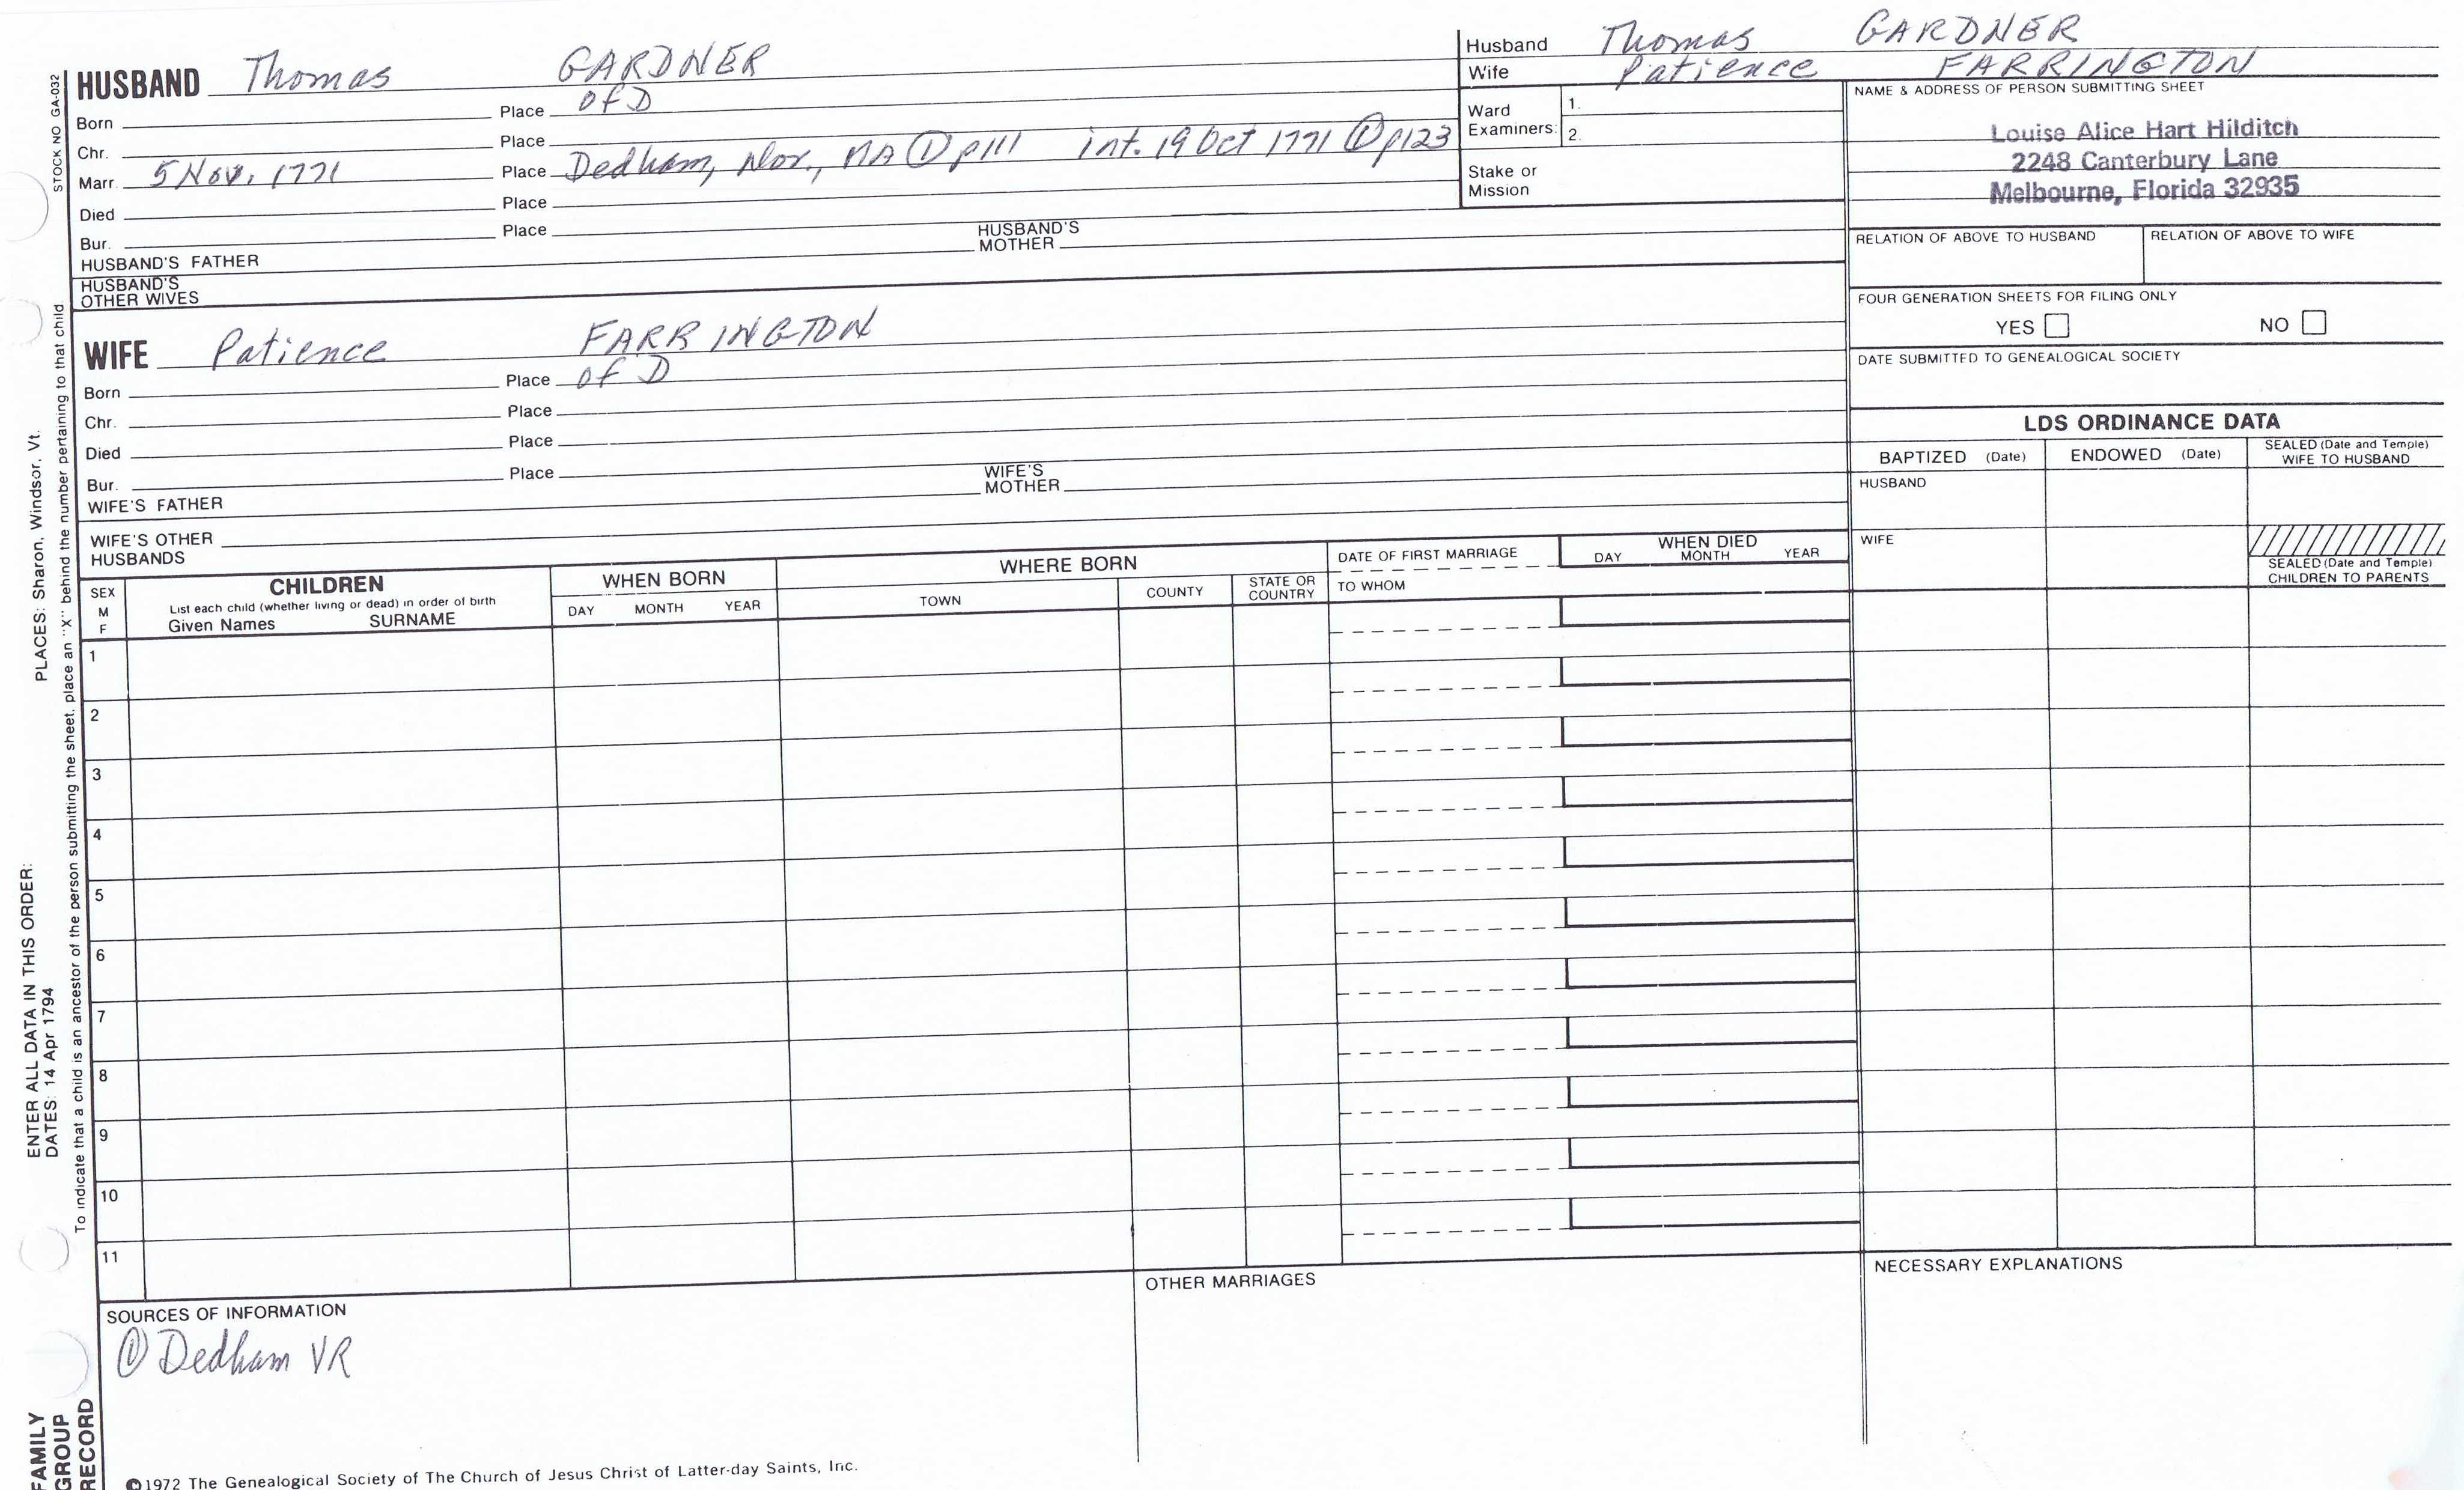 STOCK NO GA-032
HUSBAND Thomas GARDNER
Born Place of D
Chr. Place
Marr. 5 Nov. 1771 Place Dedham, Nor., MA ① p111 int. 19 Oct 1771 ① p123
Died Place
Bur. Place
HUSBAND'S FATHER HUSBAND'S MOTHER
HUSBAND'S OTHER WIVES
WIFE Patience FARRINGTON
Born Place of D
Chr. Place
Died Place
Bur. Place
WIFE'S FATHER WIFE'S MOTHER
WIFE'S OTHER HUSBANDS
Husband Thomas GARDNER
Wife Patience FARRINGTON
Ward Examiners: 1.
2.
Stake or Mission
NAME & ADDRESS OF PERSON SUBMITTING SHEET
Louise Alice Hart Hilditch
2248 Canterbury Lane
Melbourne, Florida 32935
RELATION OF ABOVE TO HUSBAND RELATION OF ABOVE TO WIFE
FOUR GENERATION SHEETS FOR FILING ONLY
YES NO
DATE SUBMITTED TO GENEALOGICAL SOCIETY
LDS ORDINANCE DATA
BAPTIZED (Date) ENDOWED (Date) SEALED (Date and Temple) WIFE TO HUSBAND
HUSBAND
WIFE
SEALED (Date and Temple)
CHILDREN TO PARENTS
SEX M F
CHILDREN
List each child (whether living or dead) in order of birth
Given Names SURNAME
WHEN BORN
DAY MONTH YEAR
WHERE BORN
TOWN COUNTY STATE OR COUNTRY
DATE OF FIRST MARRIAGE
TO WHOM
WHEN DIED
DAY MONTH YEAR
1
2
3
4
5
6
7
8
9
10
11
SOURCES OF INFORMATION
① Dedham VR
OTHER MARRIAGES
NECESSARY EXPLANATIONS
©1972 The Genealogical Society of The Church of Jesus Christ of Latter-day Saints, Inc.
FAMILY
GROUP
RECORD
ENTER ALL DATA IN THIS ORDER:
DATES: 14 Apr 1794
PLACES: Sharon, Windsor, Vt.
To indicate that a child is an ancestor of the person submitting the sheet, place an "X" behind the number pertaining to that child